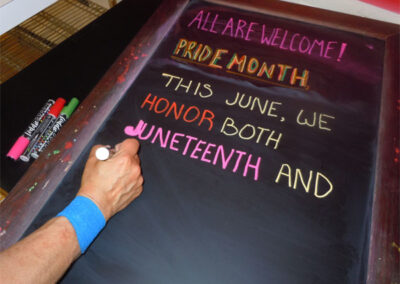 ALL ARE WELCOME!
PRIDE MONTH
THIS JUNE, WE
HONOR BOTH
JUNETEENTH AND